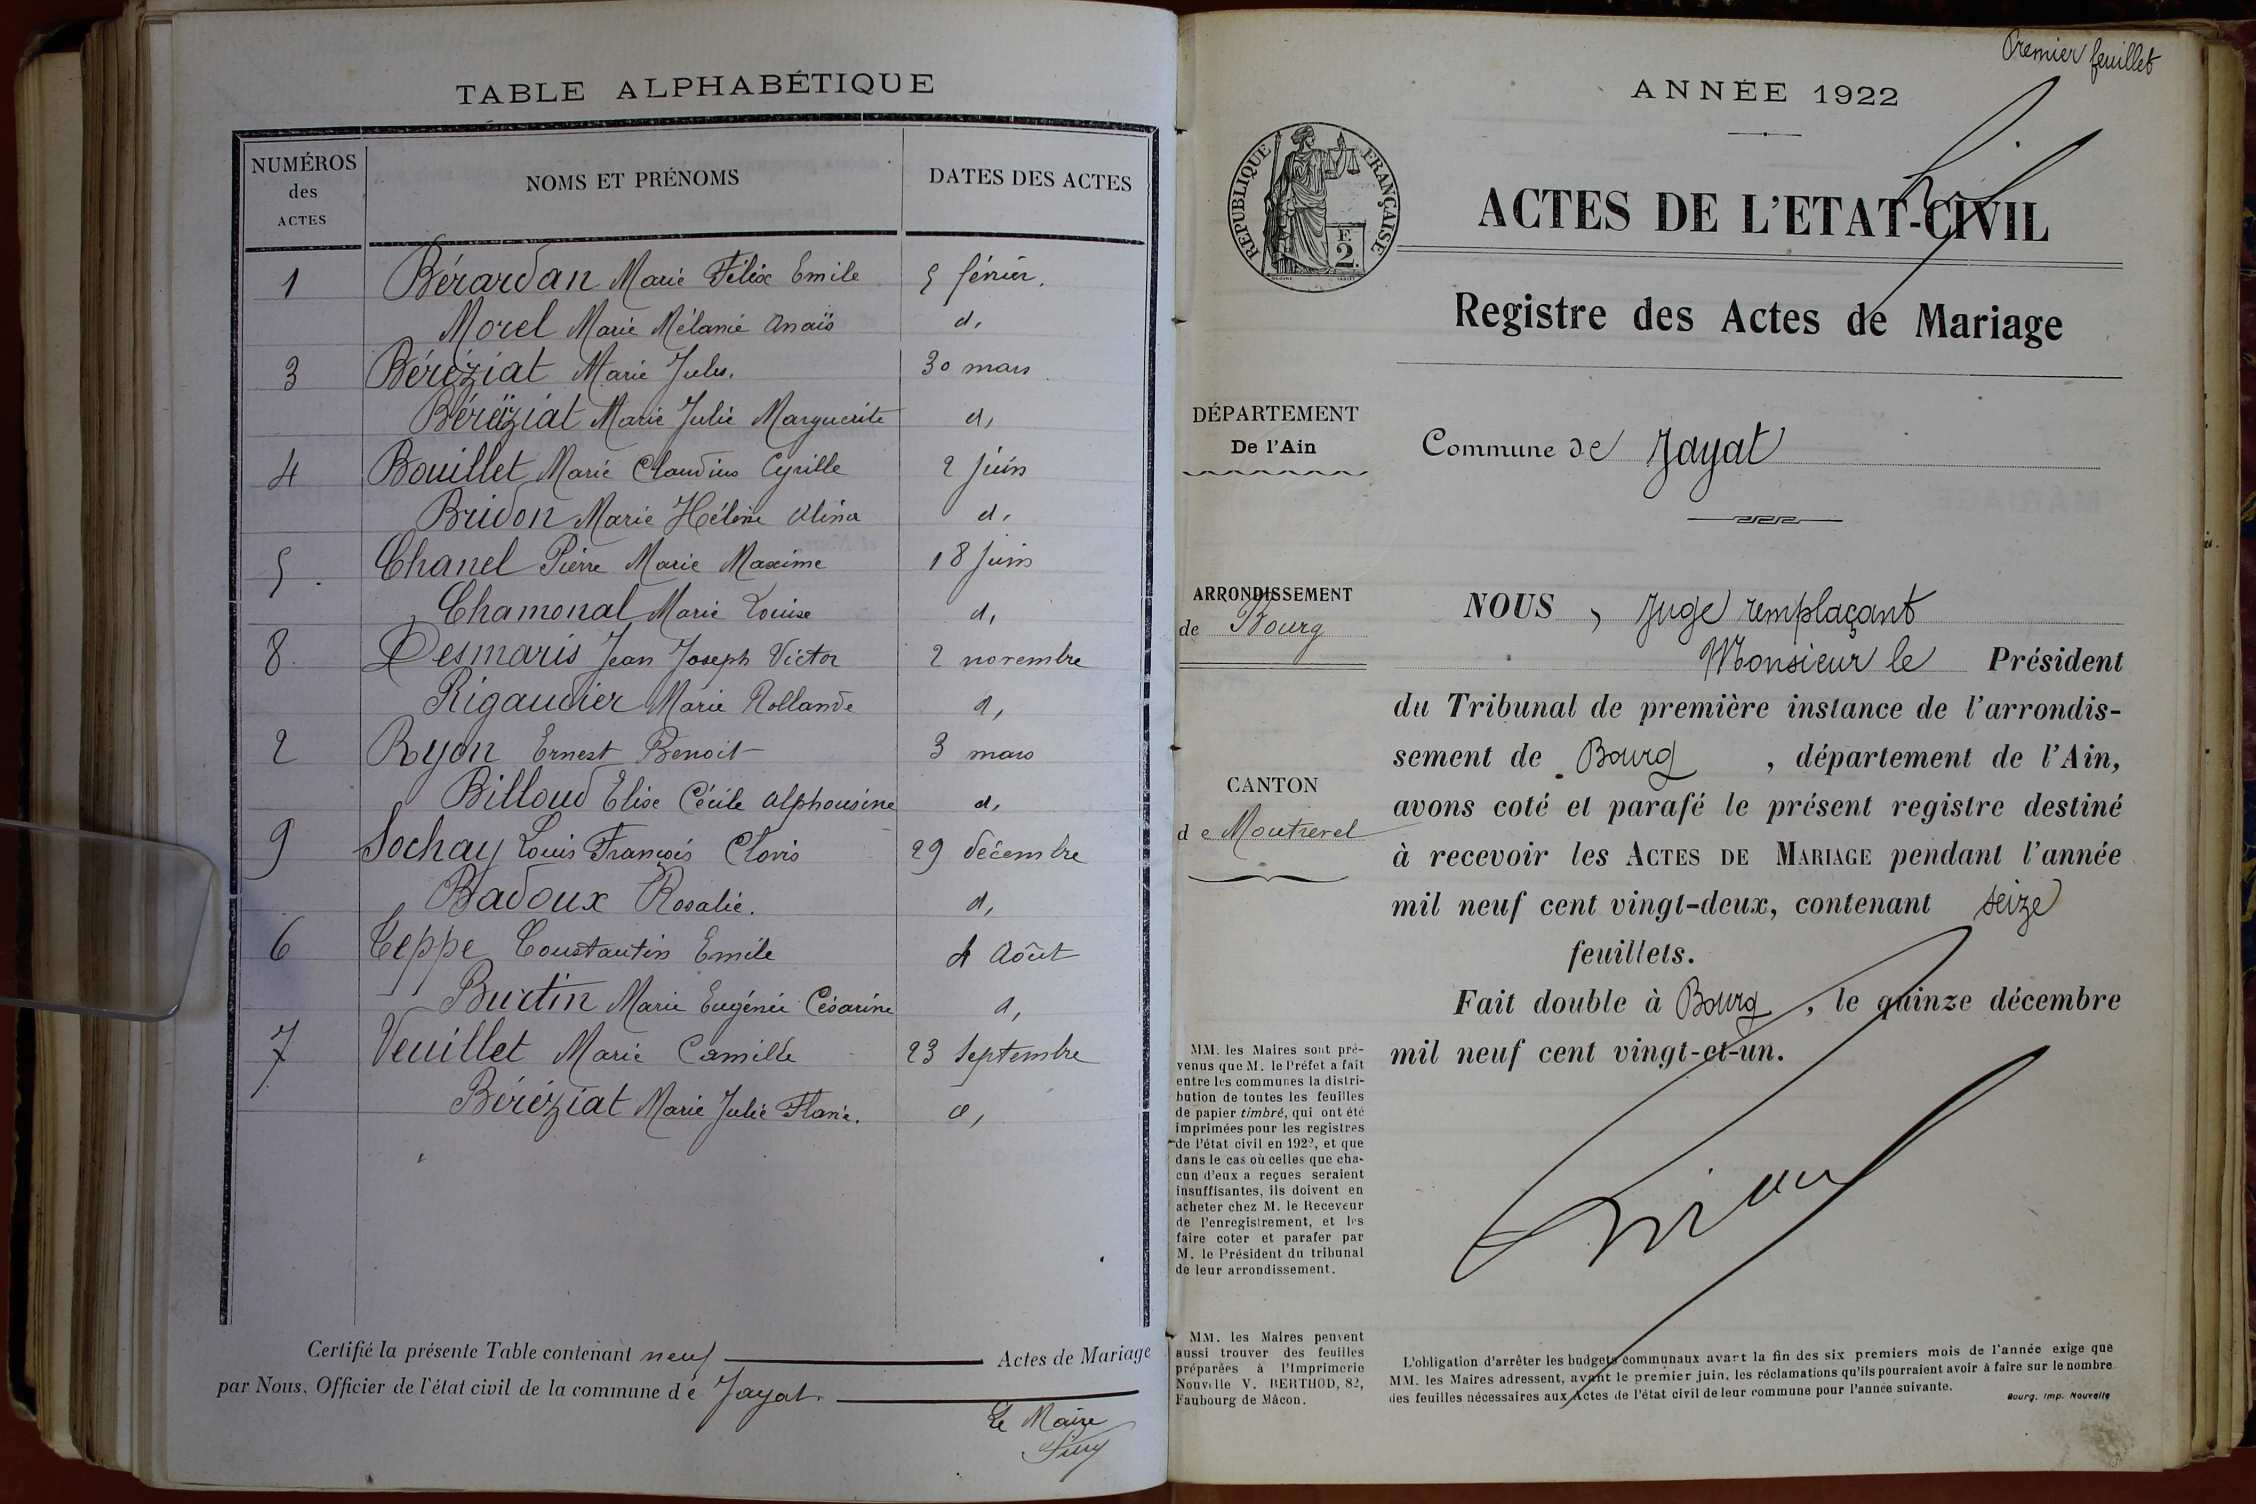 TABLE ALPHABÉTIQUE
NUMÉROS des ACTES
NOMS ET PRÉNOMS
DATES DES ACTES
1 Bérardan Marie Félix Emile 5 février.
Morel Marie Mélanie Anaïs d,
3 Béréziat Marie Jules. 30 mars
Béréziat Marie Julie Marguerite d,
4 Bouillet Marie Claudius Cyrille 2 juin
Bridon Marie Hélène Alina d,
5 Chanel Pierre Marie Maxime 18 juin
Chamonal Marie Louise d,
8 Desmaris Jean Joseph Victor 2 novembre
Rigaudier Marie Rollande d,
2 Ryon Ernest Benoit 3 mars
Billoud Elise Cécile Alphonsine d,
9 Sochay Louis François Clovis 29 décembre
Badoux Rosalie. d,
6 Teppe Constantin Emile 4 Août
Burtin Marie Eugénie Césarine d,
7 Veuillet Marie Camille 23 Septembre
Béréziat Marie Julie Flavie. d,
Certifié la présente Table contenant neuf Actes de Mariage
par Nous, Officier de l'état civil de la commune de Jayat.
Le Maire
Premier feuillet
ANNÉE 1922
RÉPUBLIQUE FRANÇAISE
F.
2.
ACTES DE L'ETAT-CIVIL
Registre des Actes de Mariage
DÉPARTEMENT
De l'Ain
Commune de Jayat
ARRONDISSEMENT
de Bourg
CANTON
de Montrevel
NOUS, Juge remplaçant
Monsieur le Président
du Tribunal de première instance de l'arrondis-
sement de Bourg, département de l'Ain,
avons coté et parafé le présent registre destiné
à recevoir les ACTES DE MARIAGE pendant l'année
mil neuf cent vingt-deux, contenant seize
feuillets.
Fait double à Bourg, le quinze décembre
mil neuf cent vingt-et-un.
MM. les Maires sont pré-
venus que M. le Préfet a fait
entre les communes la distri-
bution de toutes les feuilles
de papier timbré, qui ont été
imprimées pour les registres
de l'état civil en 1922, et que
dans le cas où celles que cha-
cun d'eux a reçues seraient
insuffisantes, ils doivent en
acheter chez M. le Receveur
de l'enregistrement, et les
faire coter et parafer par
M. le Président du tribunal
de leur arrondissement.
MM. les Maires peuvent
aussi trouver des feuilles
préparées à l'Imprimerie
Nouvelle V. BERTHOD, 82,
Faubourg de Mâcon.
L'obligation d'arrêter les budgets communaux avant la fin des six premiers mois de l'année exige que
MM. les Maires adressent, avant le premier juin, les réclamations qu'ils pourraient avoir à faire sur le nombre
des feuilles nécessaires aux Actes de l'état civil de leur commune pour l'année suivante.
Bourg, Imp. Nouvelle